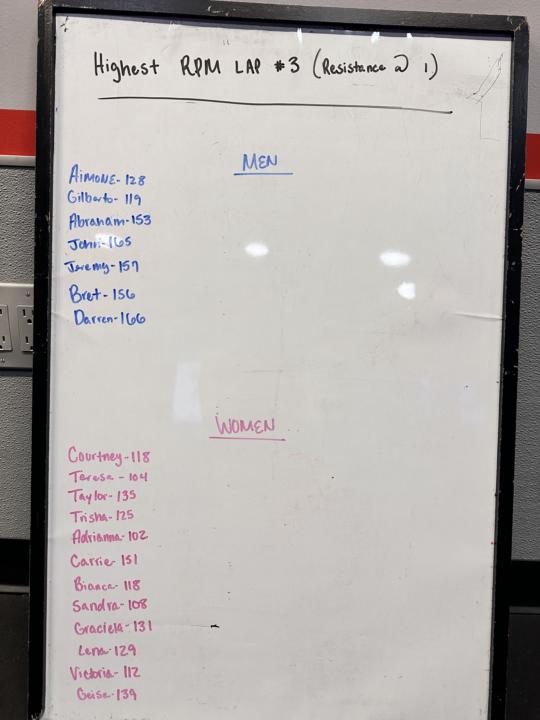 Highest RPM LAP #3 (Resistance @ 1)
MEN
AimONE- 128
Gilberto- 119
Abraham-153
John-165
Jeremy-157
Bret-156
Darren-166
WOMEN
Courtney-118
Teresa-104
Taylor-135
Trisha-125
Adrianna-102
Carrie-151
Bianca-118
Sandra-108
Graciela-131
Lena-129
Victoria-112
Geisa-139